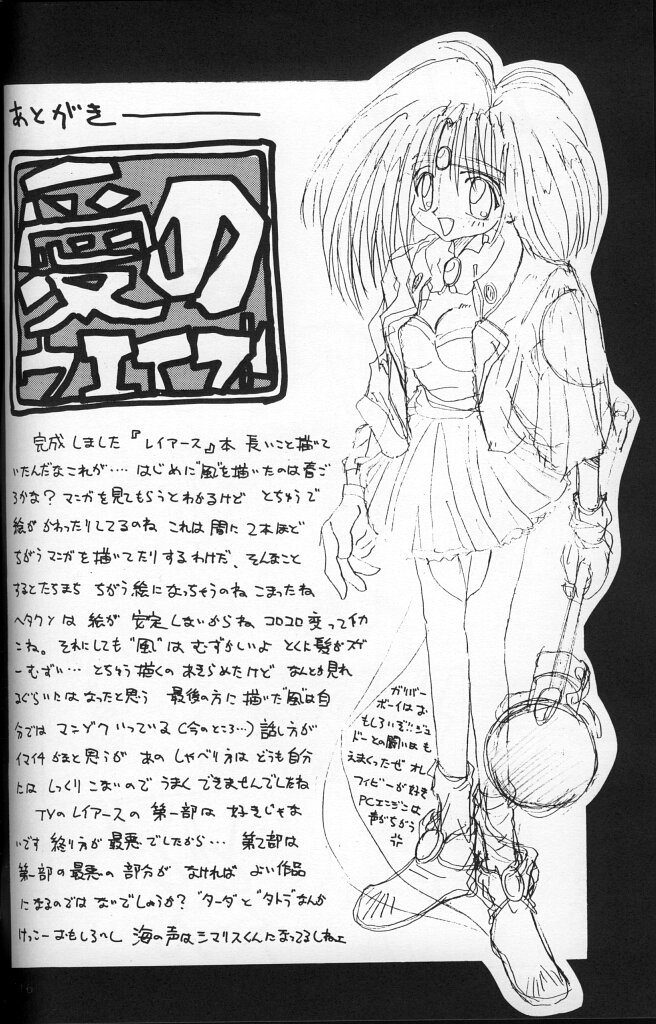 あとがき
愛の
完成しました『レイアース』本 長いこと描いて
いたんだなこれが‥‥ はじめに"風"を描いたのは春ご
ろかな？マンガを見てもらうとわかるけど とちゅうで
絵が かわったりしてるのね これは間に2本ほど
ちがうマンガを描いてたりするわけだ、そんなこと
するとたちまち ちがう絵になっちゃうのね こまったね
ヘタクソは 絵が 安定しないからね コロコロ変って
こね。それにしても"風"は むずかしいよ とくに髪がスゲ
ーむずい… とちゅう描くのあきらめたけど なんとか見れ
るぐらいにはなったと思う 最後の方に描いた"風"は自
分では マンゾクいっている（今のところ…）話し方が
イマイチかなと思うが あの しゃべり方は どうも自分
には しっくりこないので うまく できませんでしたね
TVのレイアースの 第一部は 好きじゃな
いです 終り方が最悪でしたから… 第2部は
第一部の最悪の 部分が なければ よい作品
になるのでは ないでしょうか？"ターダ"と"タトラ"なんか
けっこーおもしろいし 海の声はシマリスくんになってるしねェ
ガリバー
ボーイはお
もしろいぞ!!ジュ
ドーとの闘いはも
えまくったぜ オレ
フィービーが好き
PCエンジンは
声がちがう
16